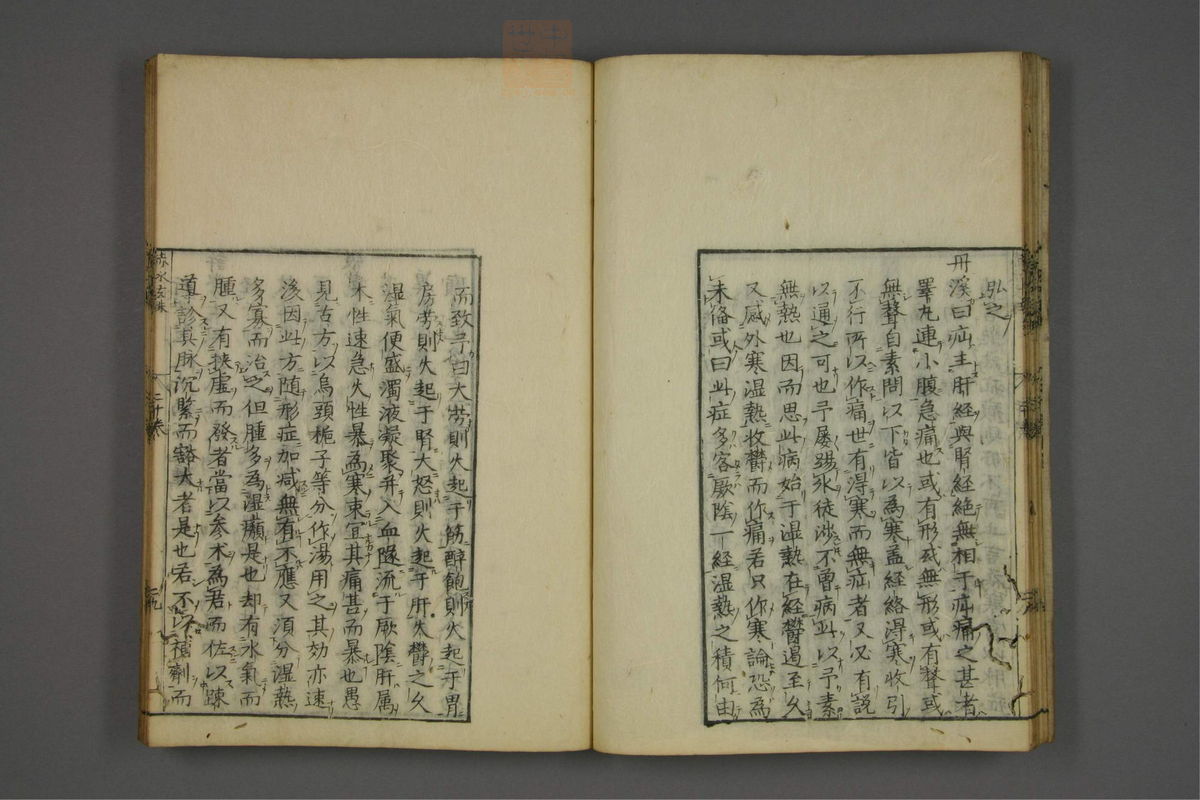 弘之
丹溪曰疝主肝經與腎經絶無相干疝痛之甚者
睪丸連小腹急痛也或有形或無形或有聲或
無聲自素問以下皆以為寒盖經絡淂寒收引
不行所以作痛世有淂寒而無症者又必有説
以通之可也予屡踢氷徒渉不曽病此以予素
無熱也因而思此病始于湿熱在経欝遏至久
又感外寒湿熱收欝而作痛若只作寒論恐為
未俻或曰此症多客厥陰一經湿熱之積何由
而致予曰大勞則火起于筋醉飽則火起于胃
房勞則火起于腎大怒則火起于肝火欝之久
湿氣便盛濁液凝聚并入血隧流于厥陰肝属
木性速急火性暴為寒束宜其痛甚而暴也愚
見古方以烏頭梔子等分作湯用之其効亦速
後因此方随形症加减無有不應又湏分湿熱
多寡而治之但腫多為湿㿗是也却有水氣而
腫又有挟虚而發者當以参术為君而佐以踈
導診其脉沉緊而豁大者是也若不以補劑而
赤水玄珠
二十卷